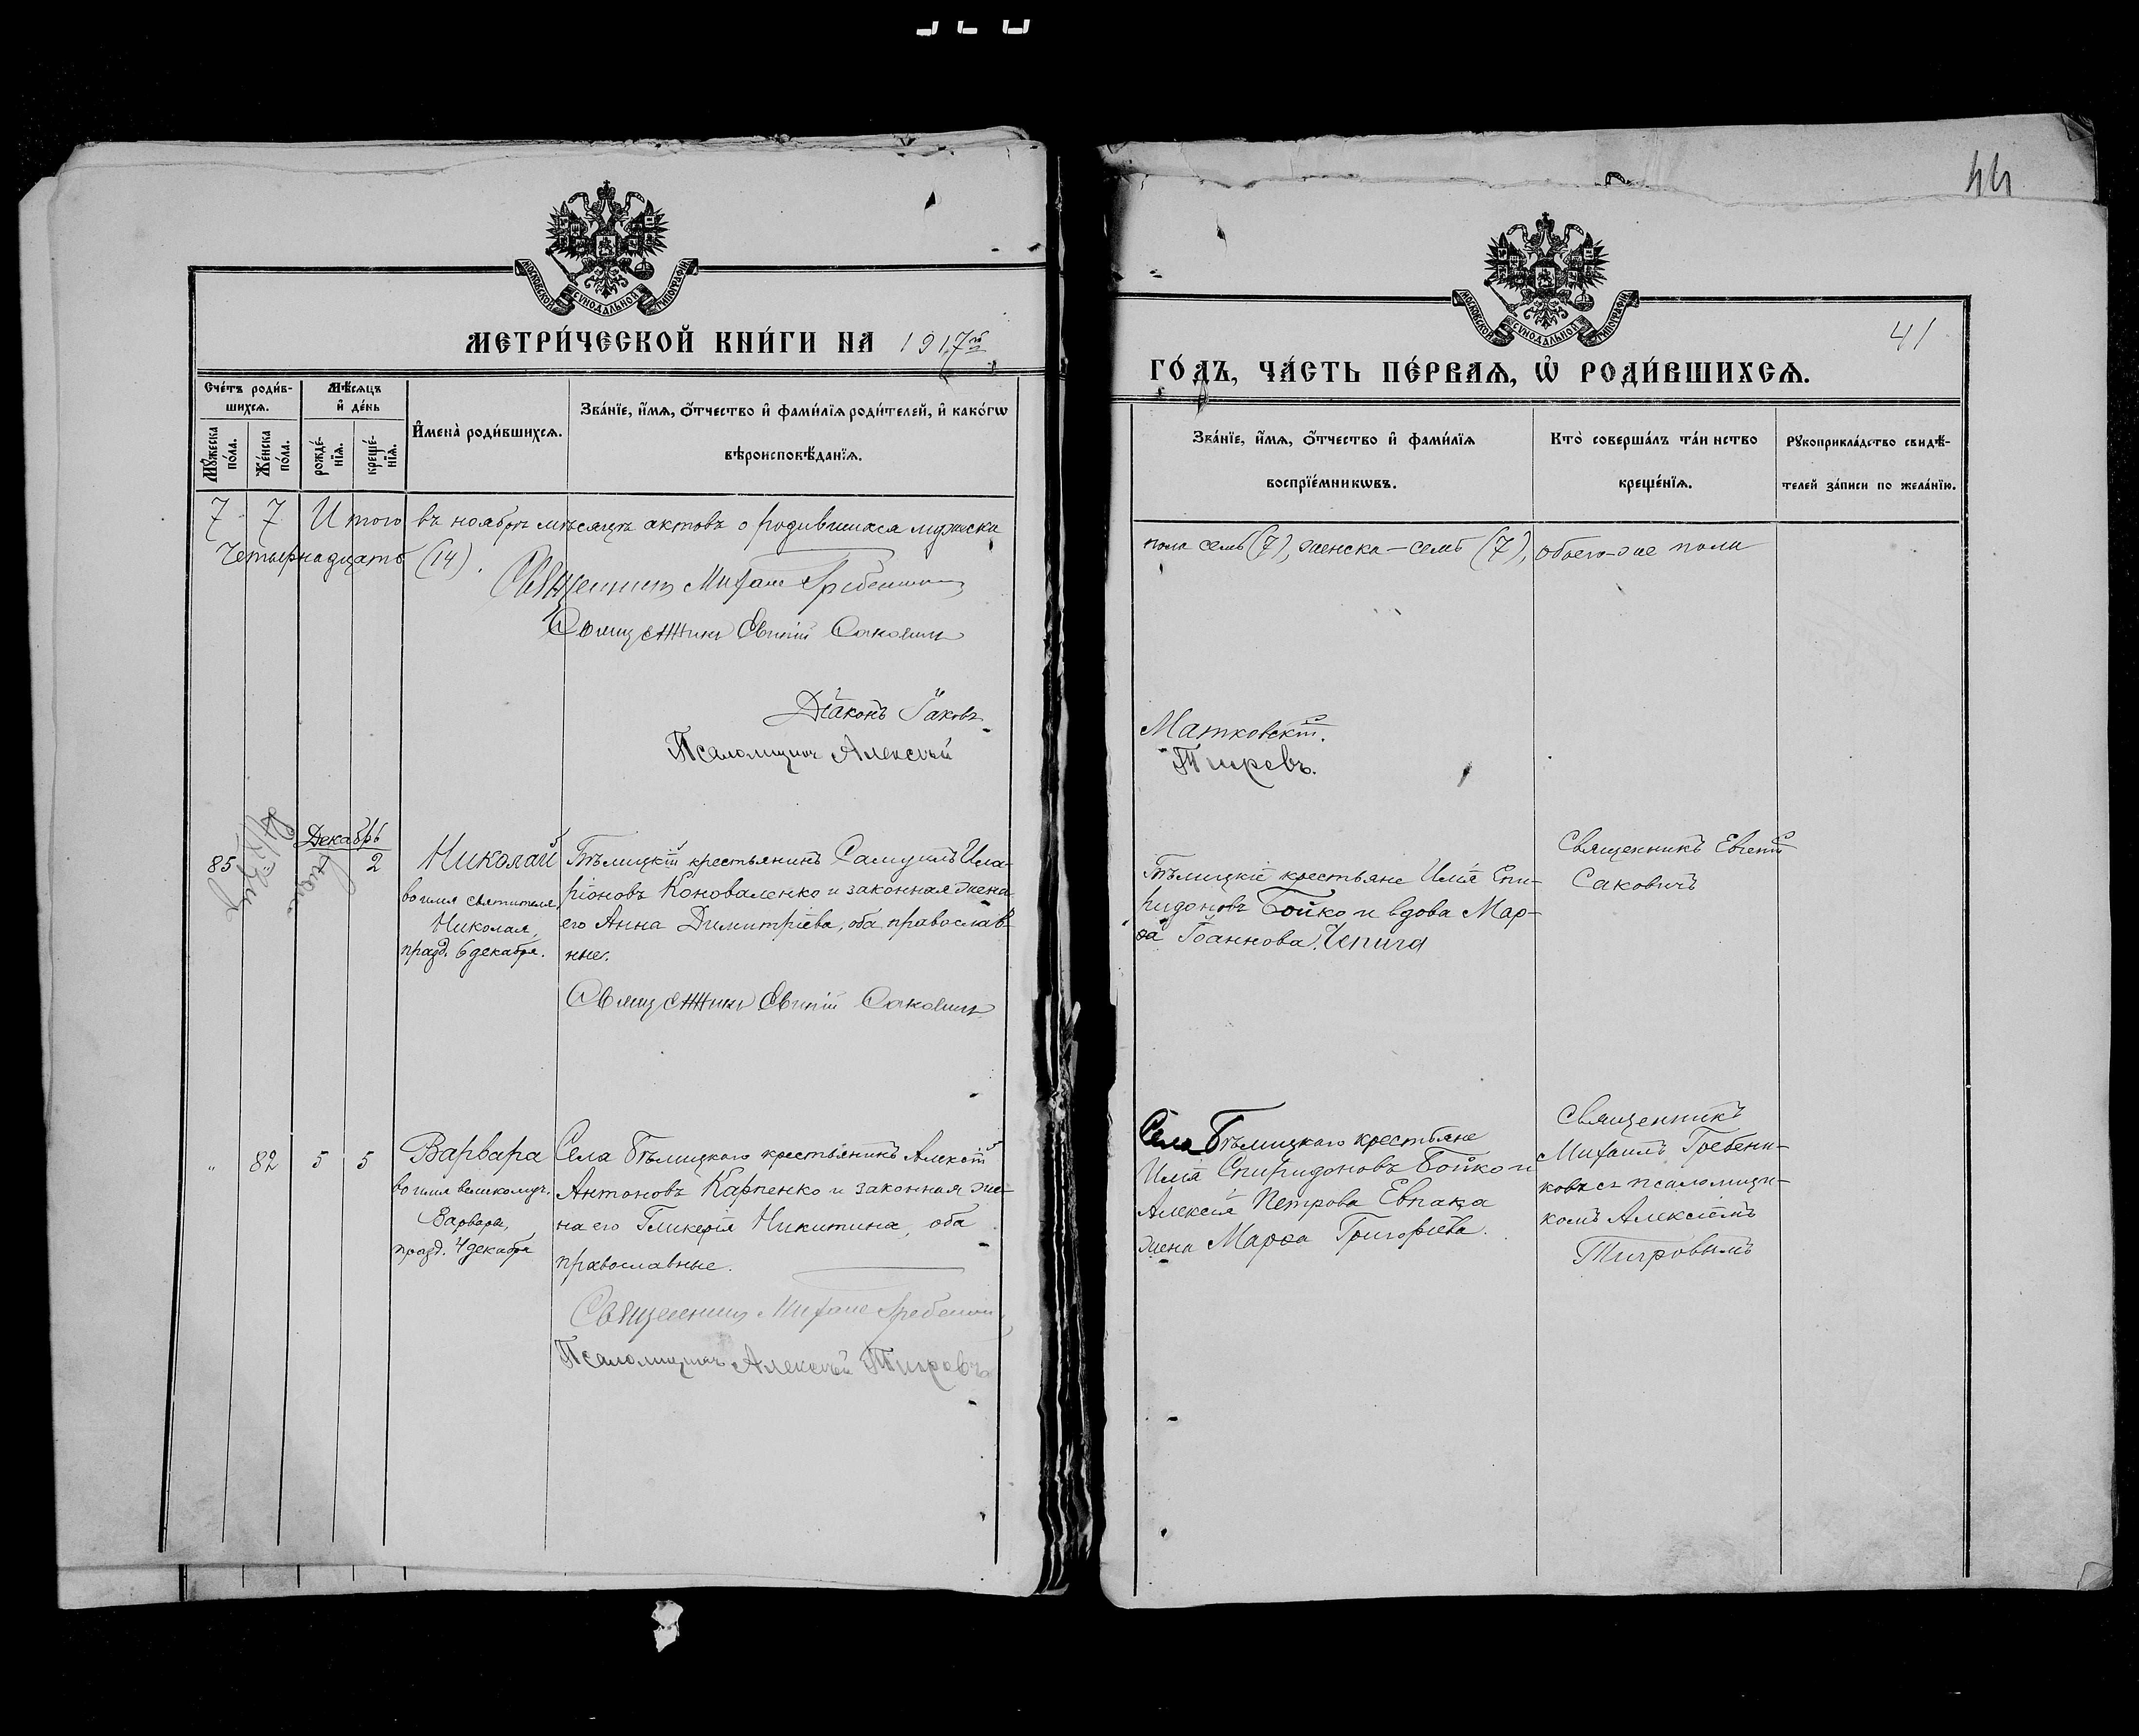 МОСКОВСКОЙ СѴНОДАЛЬНОЙ ТИПОГРАФІИ
МЕТРИ́ЧЕСКОЙ КНИ́ГИ НА 1917й
Сче́тъ роди́в-
шихсѧ.
Мѣ́сѧцъ
и҆ де́нь
И҆мена̀ роди́вшихсѧ.
Зва́нїе, и҆́мѧ, ѻ҆́тчество и҆ фами́лїѧ роди́телей, и҆ како́гѡ
вѣроисповѣ́данїѧ.
Мꙋ́жеска
по́ла.
Же́нска
по́ла.
рожде́-
нїѧ.
креще́-
нїѧ.
7 7 Итого въ ноябрѣ мѣсяцѣ актовъ о родившихся мужска
Четырнадцать (14).
Священникъ Михаилъ Гребенниковъ
Священникъ Евгеній Саковичъ
Діаконъ Іаковъ
Псаломщикъ Алексѣй
Декабрь
85 2 Николай
во имя святителя
Николая,
празд. 6 декабря.
Бѣлицкій крестьянинъ Самуилъ Ила-
ріоновъ Коноваленко и законная жена
его Анна Димитріева, оба православ-
ные.
Священникъ Евгеній Саковичъ
„ 82 5 5 Варвара
во имя великомуч.
Варвары,
празд. 4 декабря
Села Бѣлицкаго крестьянинъ Алексій
Антоновъ Карпенко и законная же-
на его Гликерія Никитина, оба
православные.
Священникъ Михаилъ Гребенников
Псаломщикъ Алексѣй Тигровъ
44
МОСКОВСКОЙ СѴНОДАЛЬНОЙ ТИПОГРАФІИ
41
ГО́ДЪ, ЧА́СТЬ ПЕ́РВАѦ, Ѡ҆ РОДИ́ВШИХСѦ.
Зва́нїе, и҆́мѧ, ѻ҆́тчество и҆ фами́лїѧ
воспрїе́мникѡвъ.
Кто̀ соверша́лъ та́инство
креще́нїѧ.
Рꙋкоприкла́дство свидѣ́-
телей за́писи по жела́нїю.
пола семь (7), женска – семь (7), обоего-же пола
Матковскій.
Тигровъ.
Бѣлицкіе крестьяне Илія Спи-
ридоновъ Бойко и вдова Мар-
ѳа Іоаннова Чепига
Священникъ Евгеній
Саковичъ
Села Бѣлицкаго крестьяне
Илія Спиридоновъ Бойко и
Алексія Петрова Евпака
жена Марѳа Григоріева.
Священникъ
Михаилъ Гребенни-
ковъ съ псаломщи-
комъ Алексіемъ
Тигровымъ